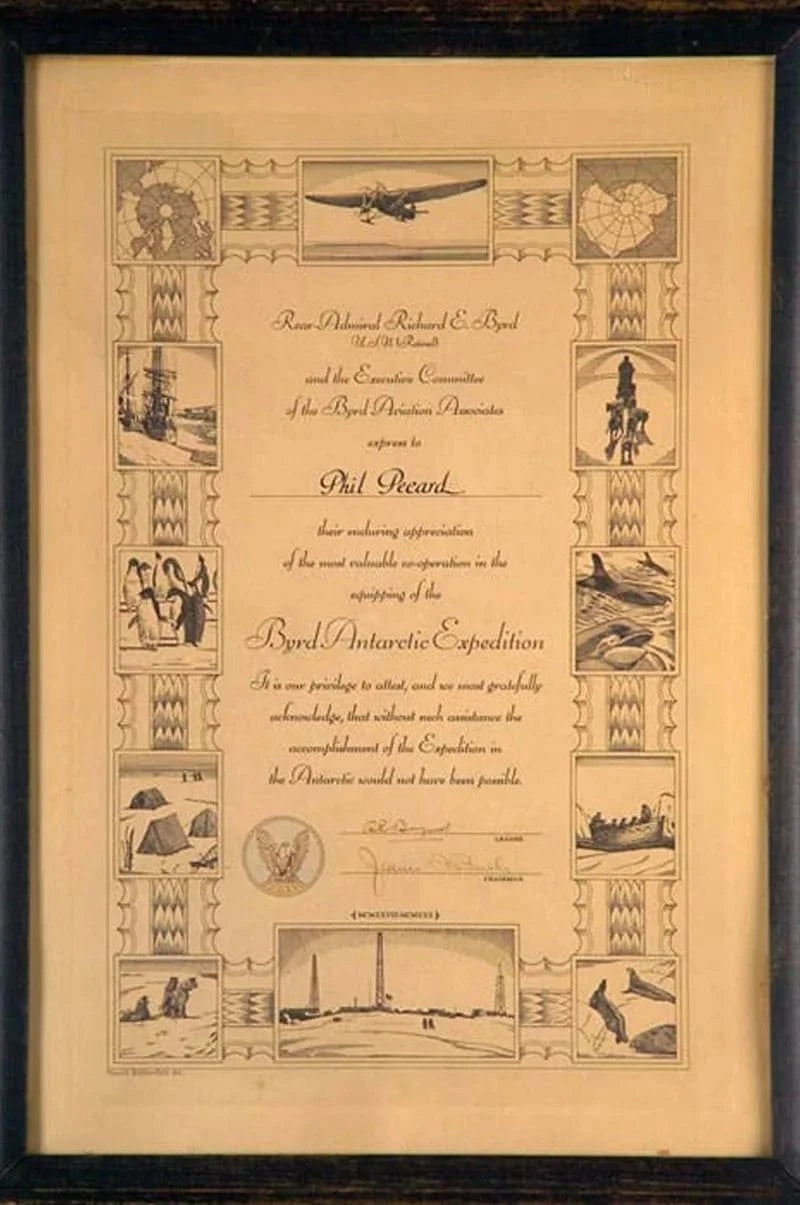 Rear-Admiral Richard E. Byrd
U.S.N. Retired
and the Executive Committee
of the Byrd Aviation Associates
express to
Phil Pecard
their enduring appreciation
of the most valuable co-operation in the
equipping of the
Byrd Antarctic Expedition
It is our privilege to attest, and we most gratefully
acknowledge, that without such assistance the
accomplishment of the Expedition in
the Antarctic would not have been possible.
LEADER
CHAIRMAN